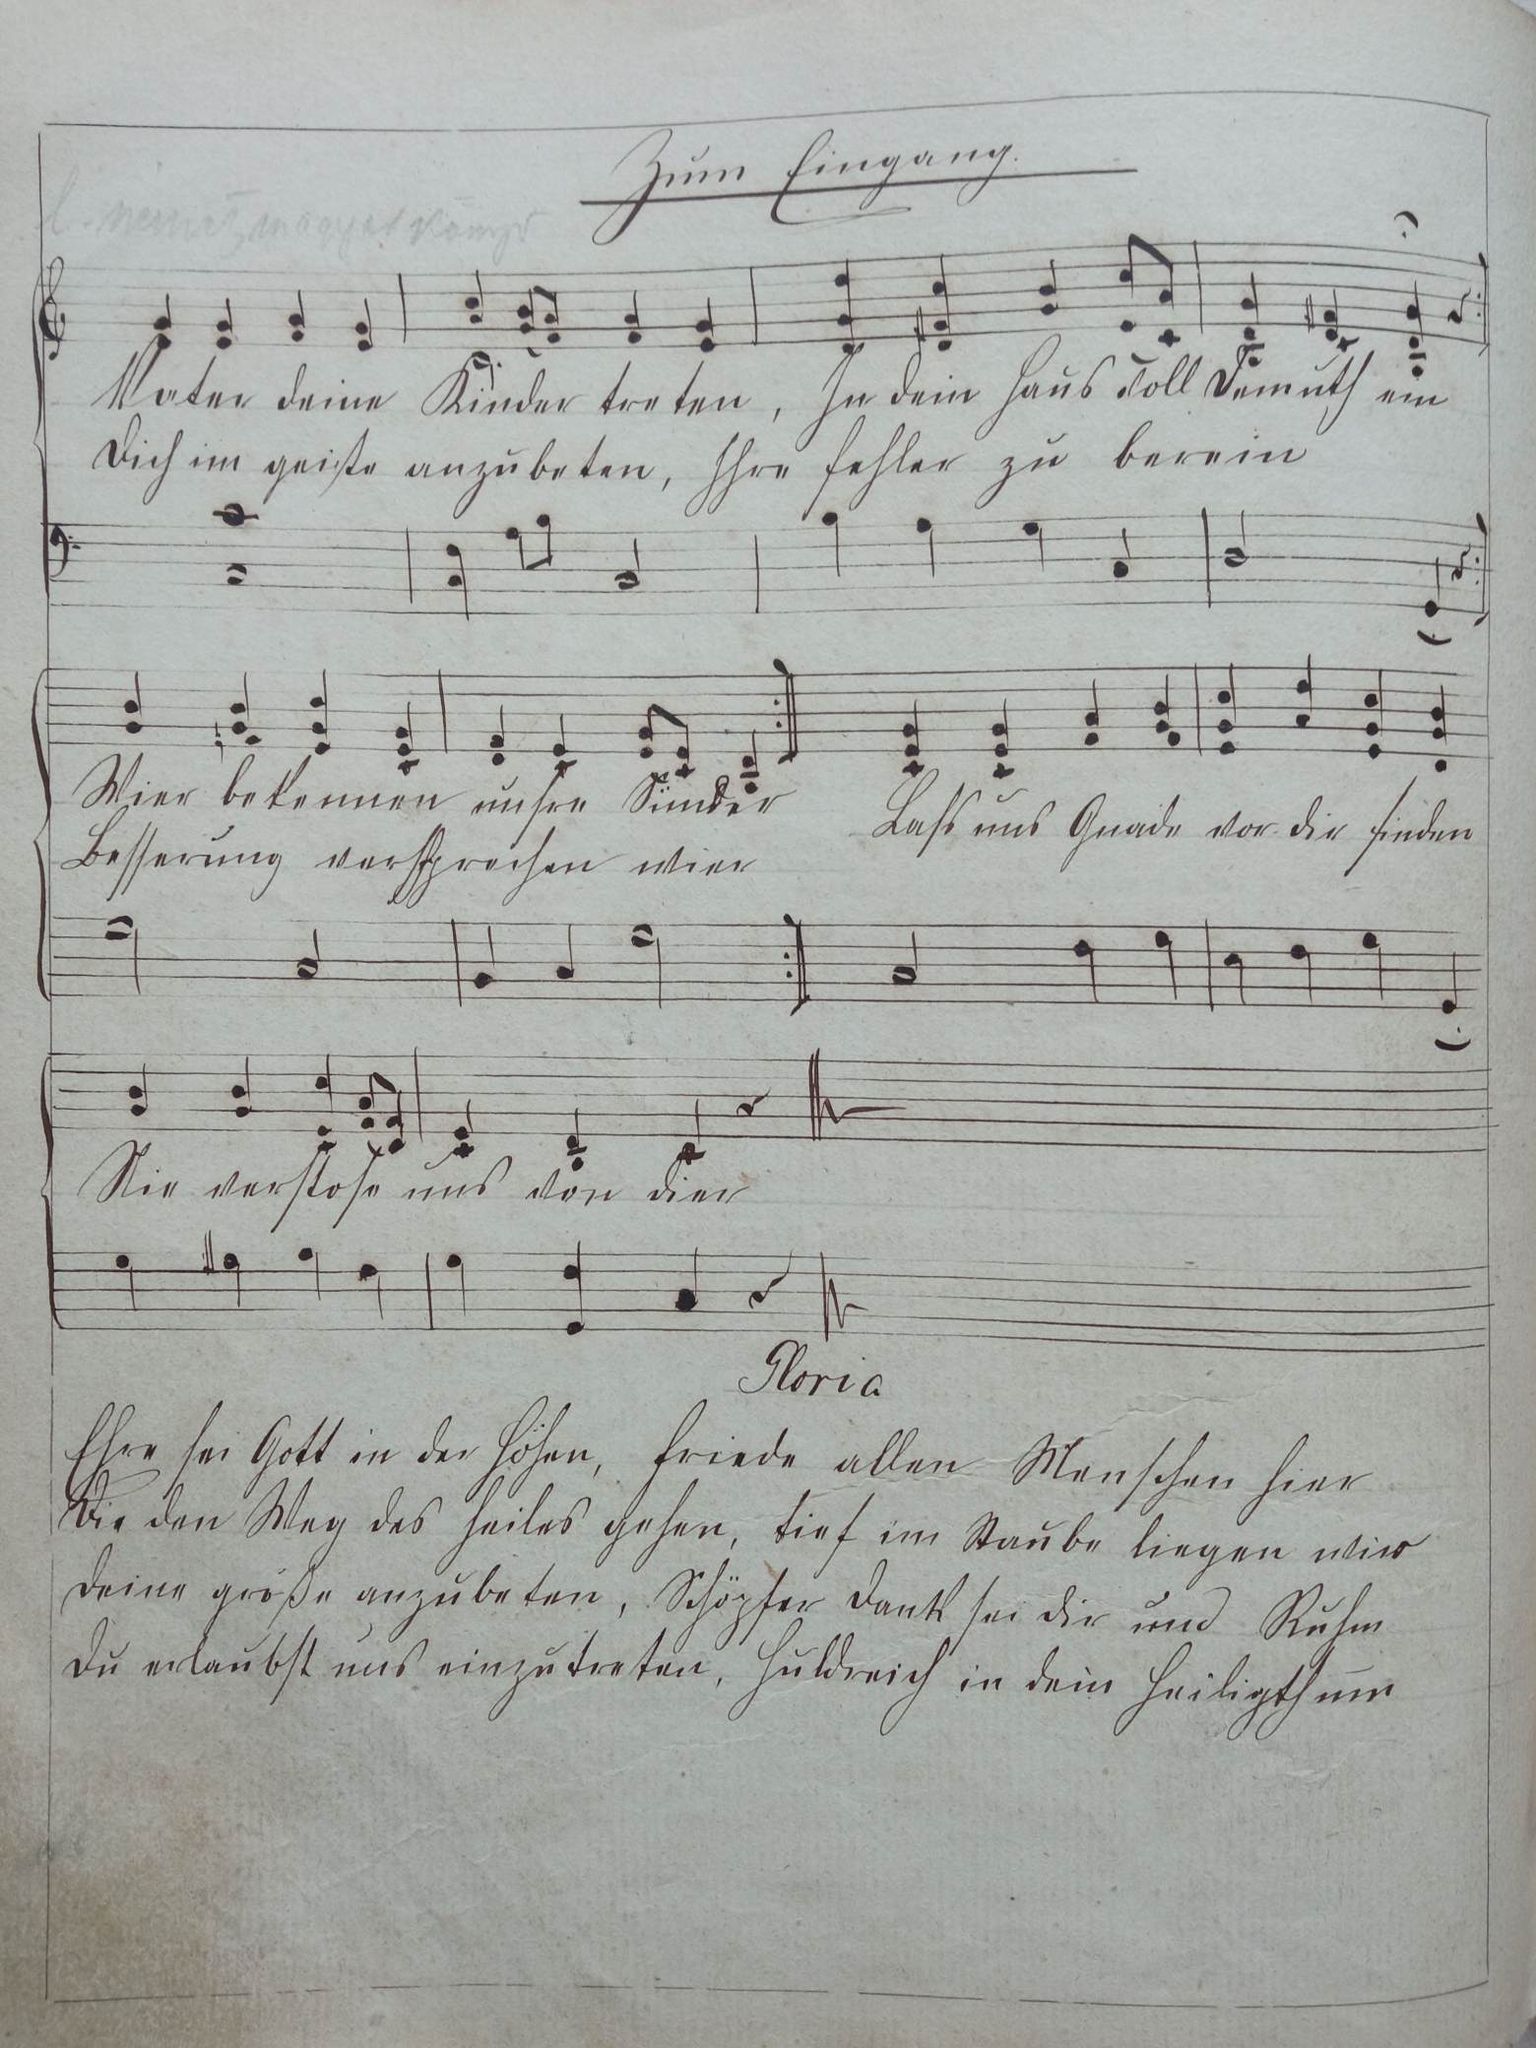 Zum Eingang.
Vater deine Kinder treten, In dein Haus voll Demuth ein
Dich im geiste anzubeten, Ihre fehler zu berein
Wier bekennen unsre Sünder Lass uns Gnade vor dir finden
Besserung versprechen wier
Nie verstose uns von dier
Gloria
Ehre sei Gott in der Höhen, friede allen Menschen hier
Die den Weg des Heiles gehen, tief im Staube liegen wir
Deine größe anzubeten, Schöpfer Dank sei dir und Ruhm
Du erlaubst uns einzutreten, Huldreich in dein Heiligthum